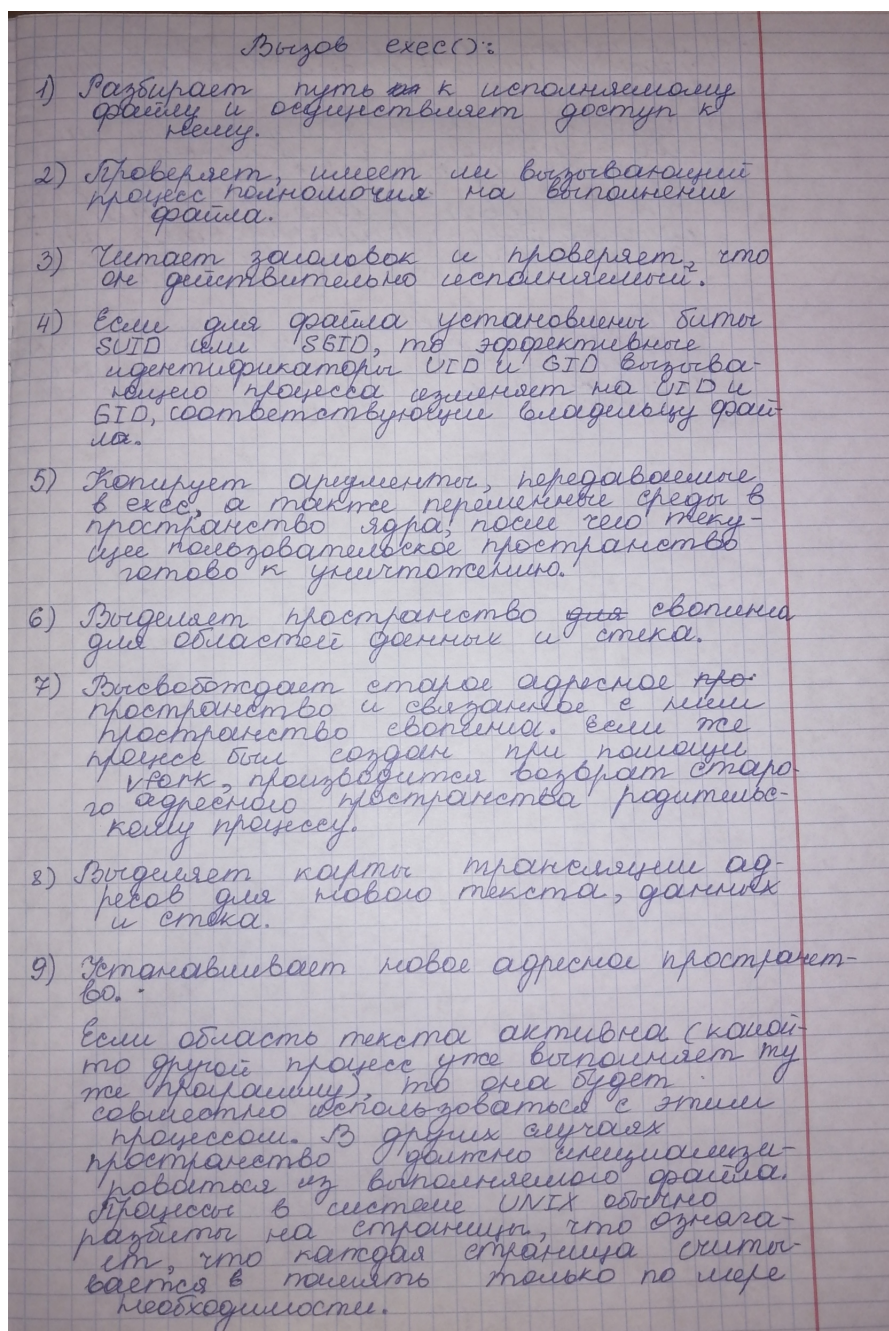 Вызов exec():
1) Разбирает путь к исполняемому
файлу и осуществляет доступ к
нему.
2) Проверяет, имеет ли вызывающий
процесс полномочия на выполнение
файла.
3) Читает заголовок и проверяет, что
он действительно исполняемый.
4) Если для файла установлены биты
SUID или SGID, то эффективные
идентификаторы UID и GID вызыва-
ющего процесса изменяет на UID и
GID, соответствующие владельцу фай-
ла.
5) Копирует аргументы, передаваемые
в exec, а также переменные среды в
пространство ядра, после чего теку-
щее пользовательское пространство
готово к уничтожению.
6) Выделяет пространство для свопинга
для областей данных и стека.
7) Высвобождает старое адресное про-
пространство и связанное с ним
пространство свопинга. Если же
процесс был создан при помощи
vfork, производится возврат старо-
го адресного пространства родительс-
кому процессу.
8) Выделяет карты трансляции ад-
ресов для нового текста, данных
и стека.
9) Устанавливает новое адресное пространст-
во.
Если область текста активна (какой-
то другой процесс уже выполняет ту
же программу), то она будет
совместно использоваться с этим
процессом. В других случаях
пространство должно инициализи-
роваться из выполняемого файла.
Процессы в системе UNIX обычно
разбиты на страницы, что означа-
ет, что каждая страница считы-
вается в память только по мере
необходимости.